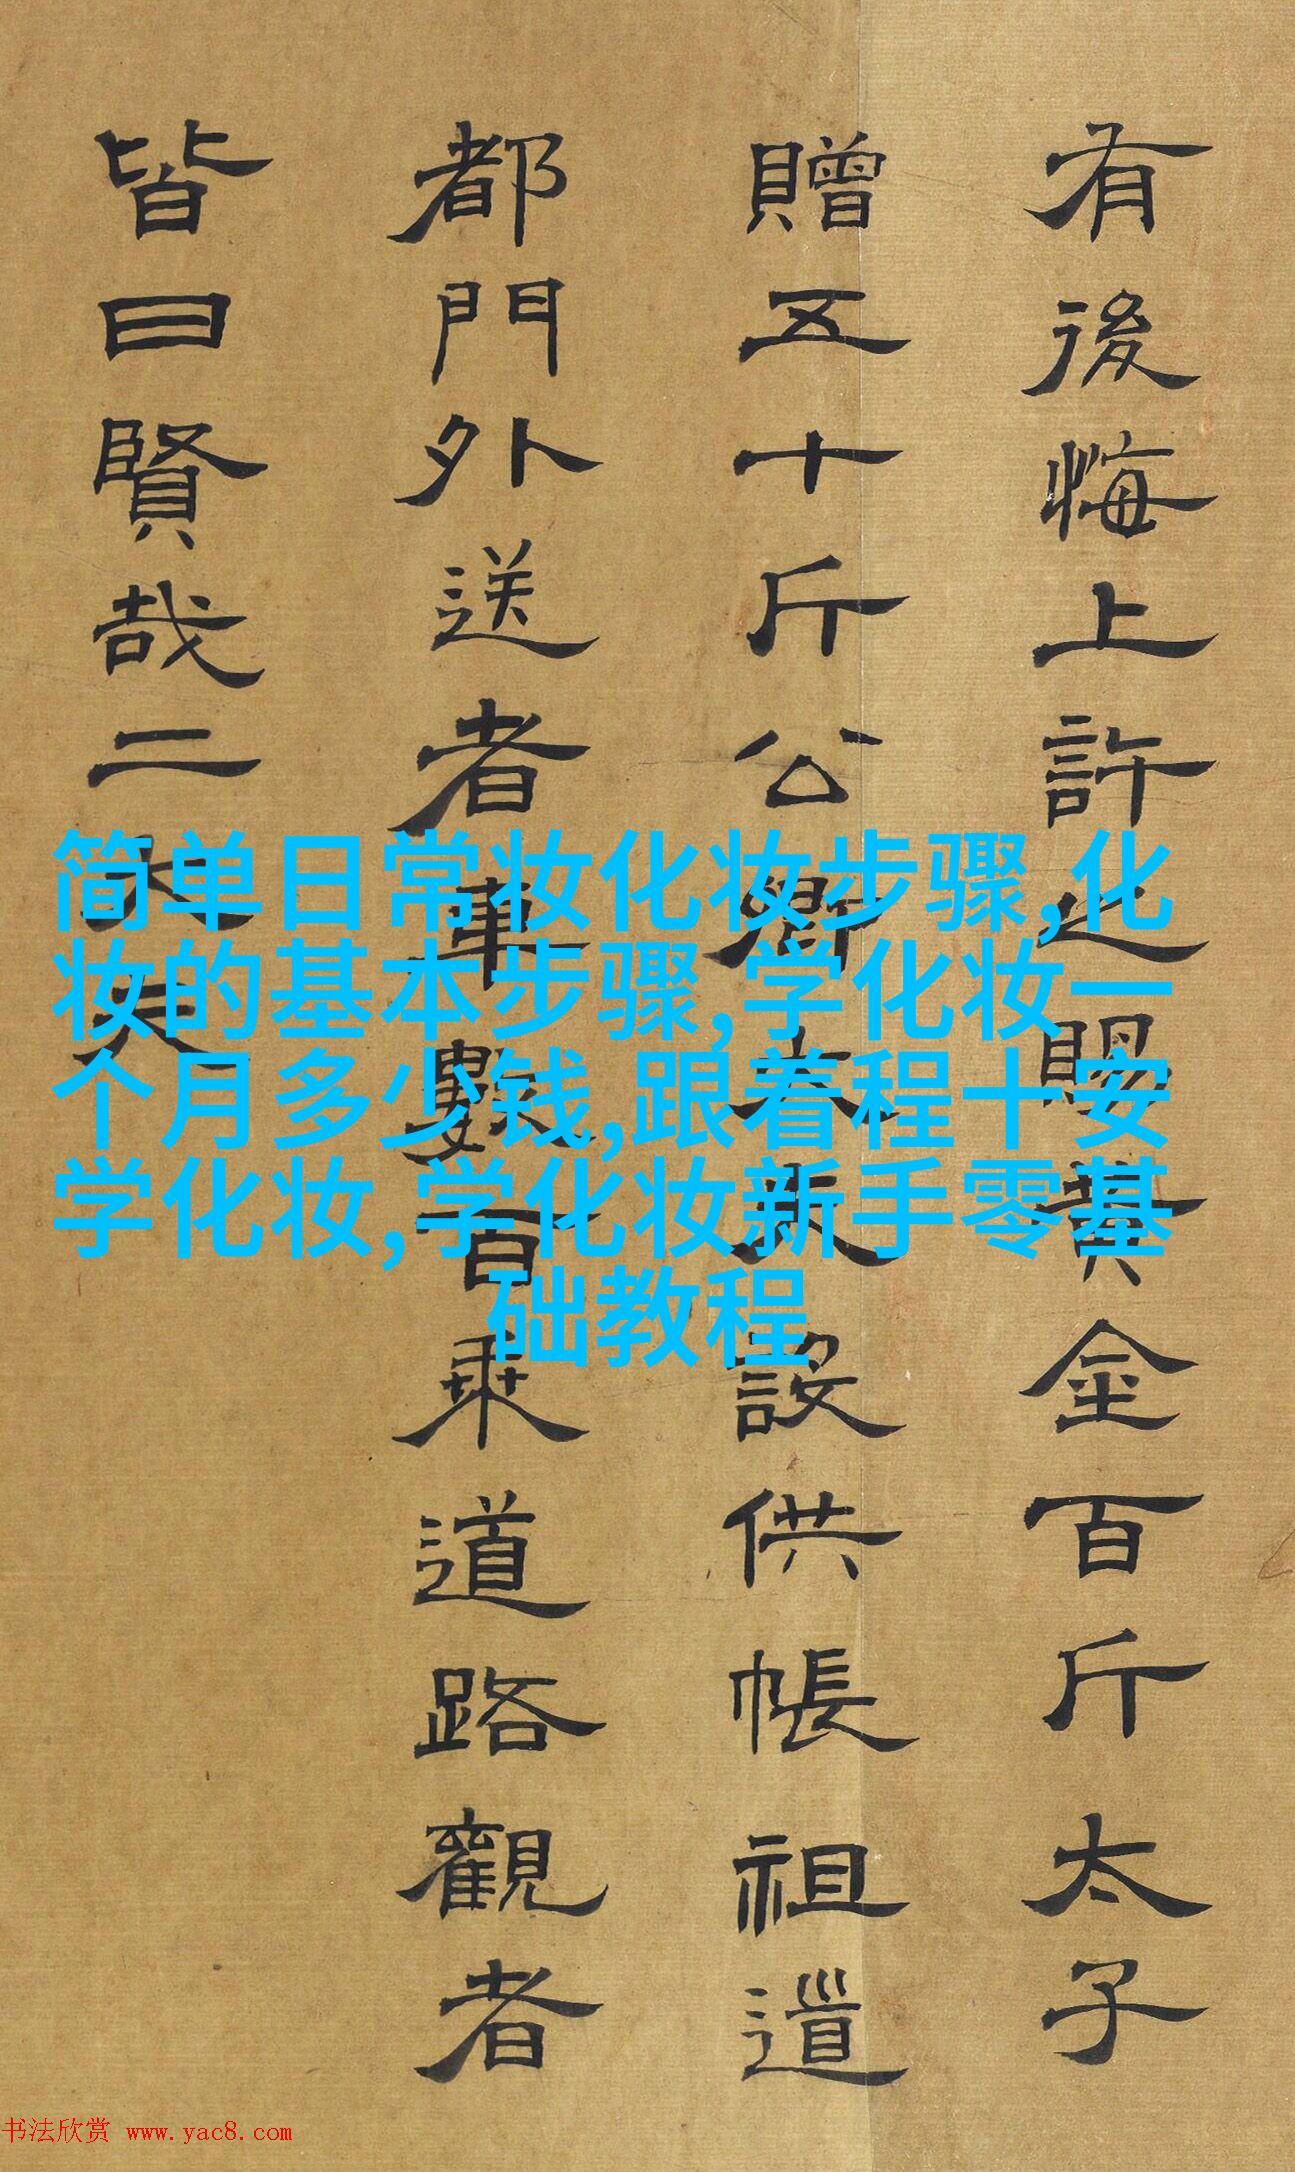 有後悔上許之賜黃金百斤太子
贈五十斤公卿大夫設供帳祖道
都門外送者車數百乘道路觀者
皆曰賢哉二大夫
简单日常妆化妆步骤,化
妆的基本步骤,学化妆一
个月多少钱,跟着程十安
学化妆,学化妆新手零基
础教程
书法欣赏 www.yac8.com